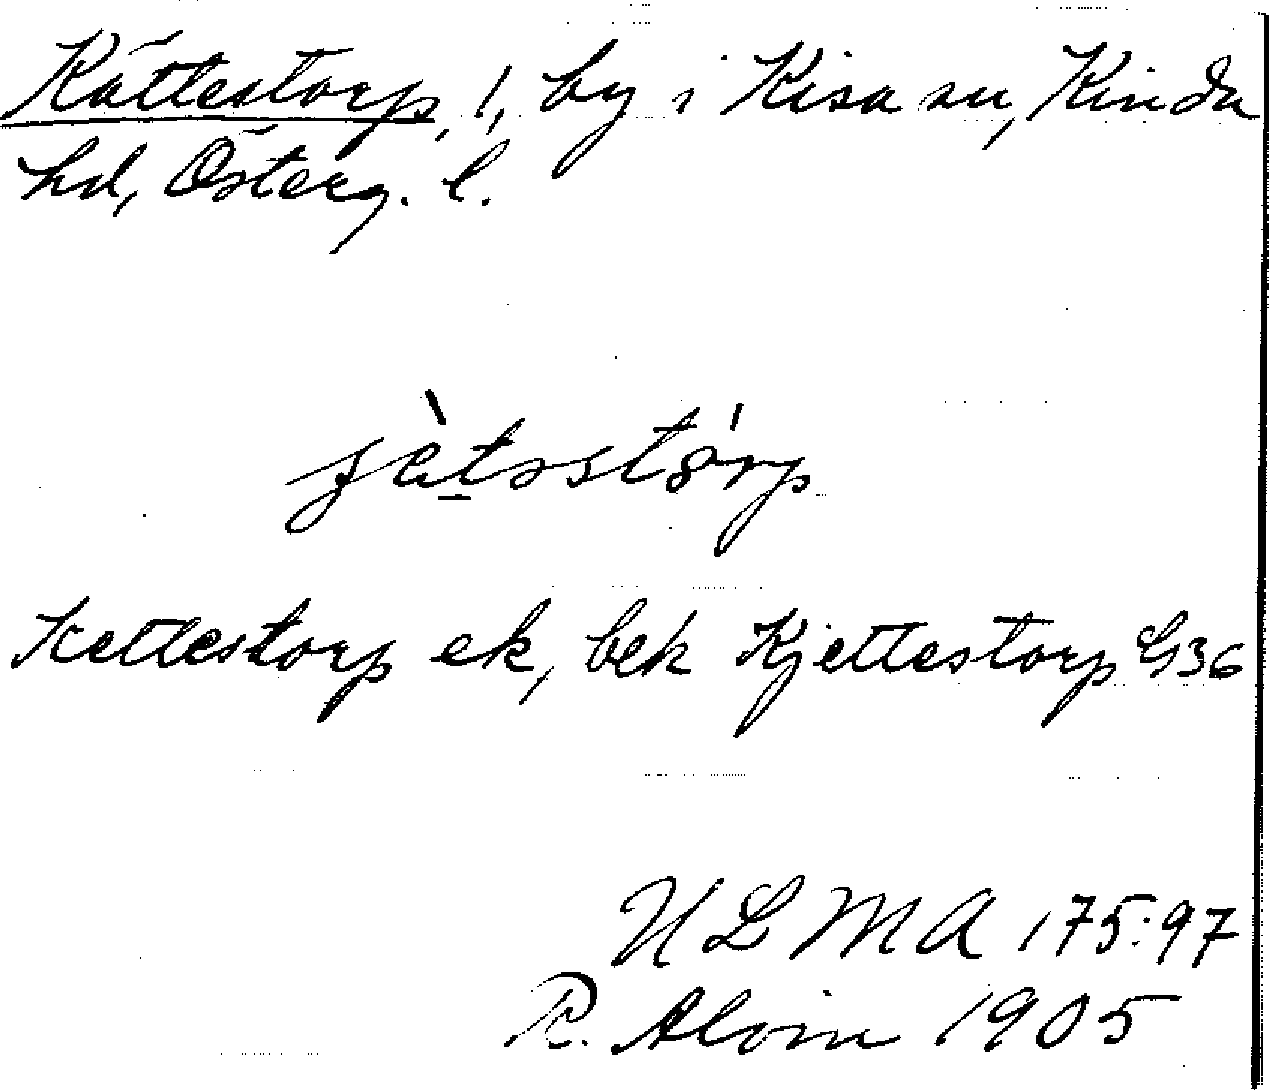 Kättestorp, 1, by i Kisa sn, Kinda
hd, Österg. l.
Kettlestorp ek, bek Kjettestorp G36
ULMA 175:97
R. Alvin 1905